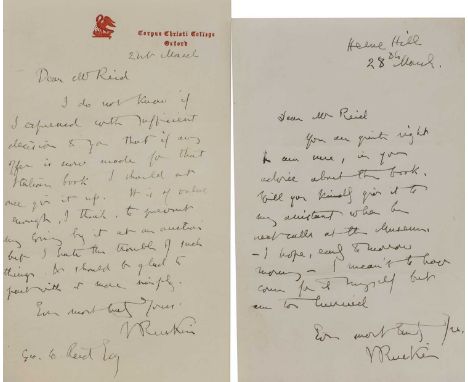 Corpus Christi College
Oxford
March
Dear Mr Reid
I do not know if
I expressed with sufficient
decision to you that if any
offer is now made for that
Italian book I should at
once give it up. It is of value
enough, I think, to prevent
my losing by it at an auction
but I hate the trouble of such
things. & should be glad to
part with it more simply.
Ever most truly Yours.
JRuskin
Geo. W. Reid Esq
Herne Hill
28th March.
Dear Mr Reid
You are quite right
I am sure, in your
advice about this book.
Will you kindly give it to
my assistant when he
next calls at the Museum
- I hope, early tomorrow
morning - I meant to have
come for it myself but
am too hurried
Ever most truly Yrs.
JRuskin